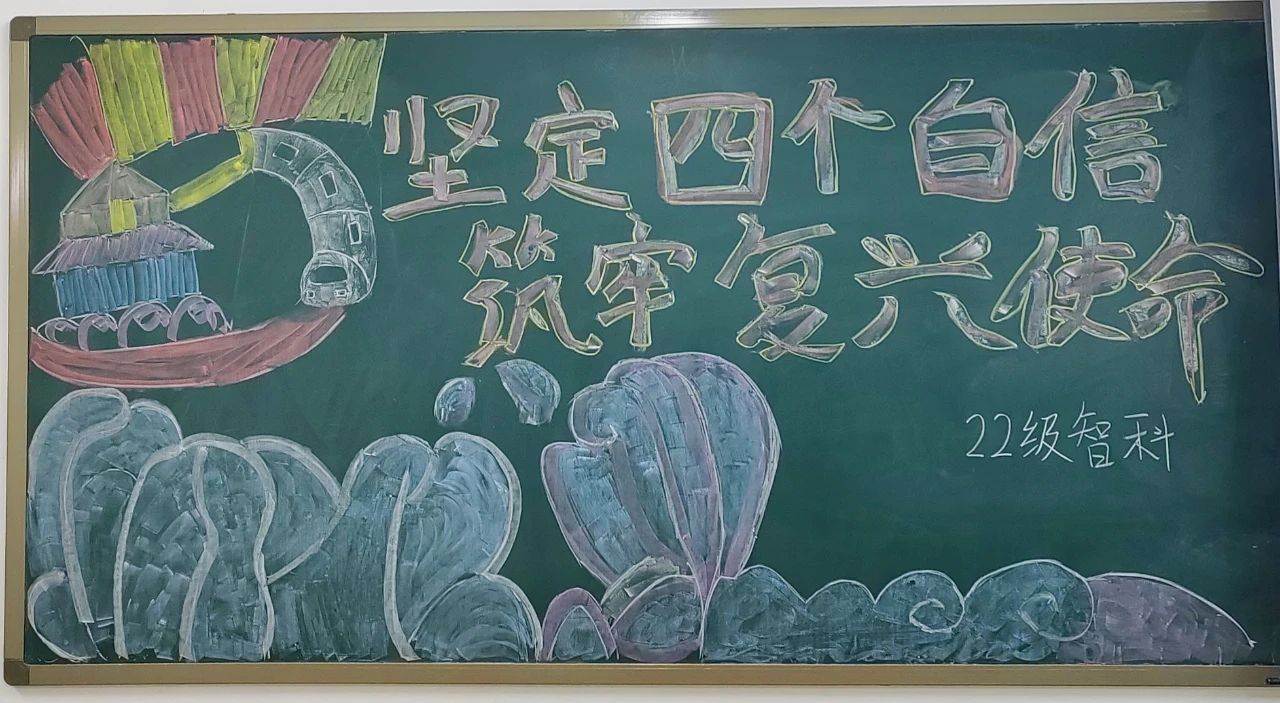 坚定四个自信
筑牢复兴使命
22级智科